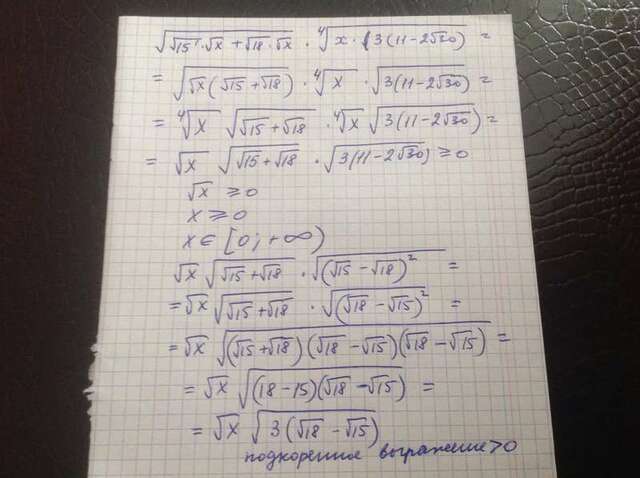 √(√15·√x + √18·√x) · ⁴√(x·(3(11-2√30)) =
= √(√x(√15+√18)) · ⁴√x · √(3(11-2√30)) =
= ⁴√x √(√15+√18) · ⁴√x √(3(11-2√30)) =
= √x √(√15+√18) · √(3(11-2√30)) ≥ 0
√x ≥ 0
x ≥ 0
x ∈ [0; +∞)
√x √(√15+√18) · √((√15-√18)²) =
= √x √(√15+√18) · √((√18-√15)²) =
= √x √((√15+√18)(√18-√15)(√18-√15)) =
= √x √((18-15)(√18-√15)) =
= √x √(3(√18-√15))
подкоренное выражение>0